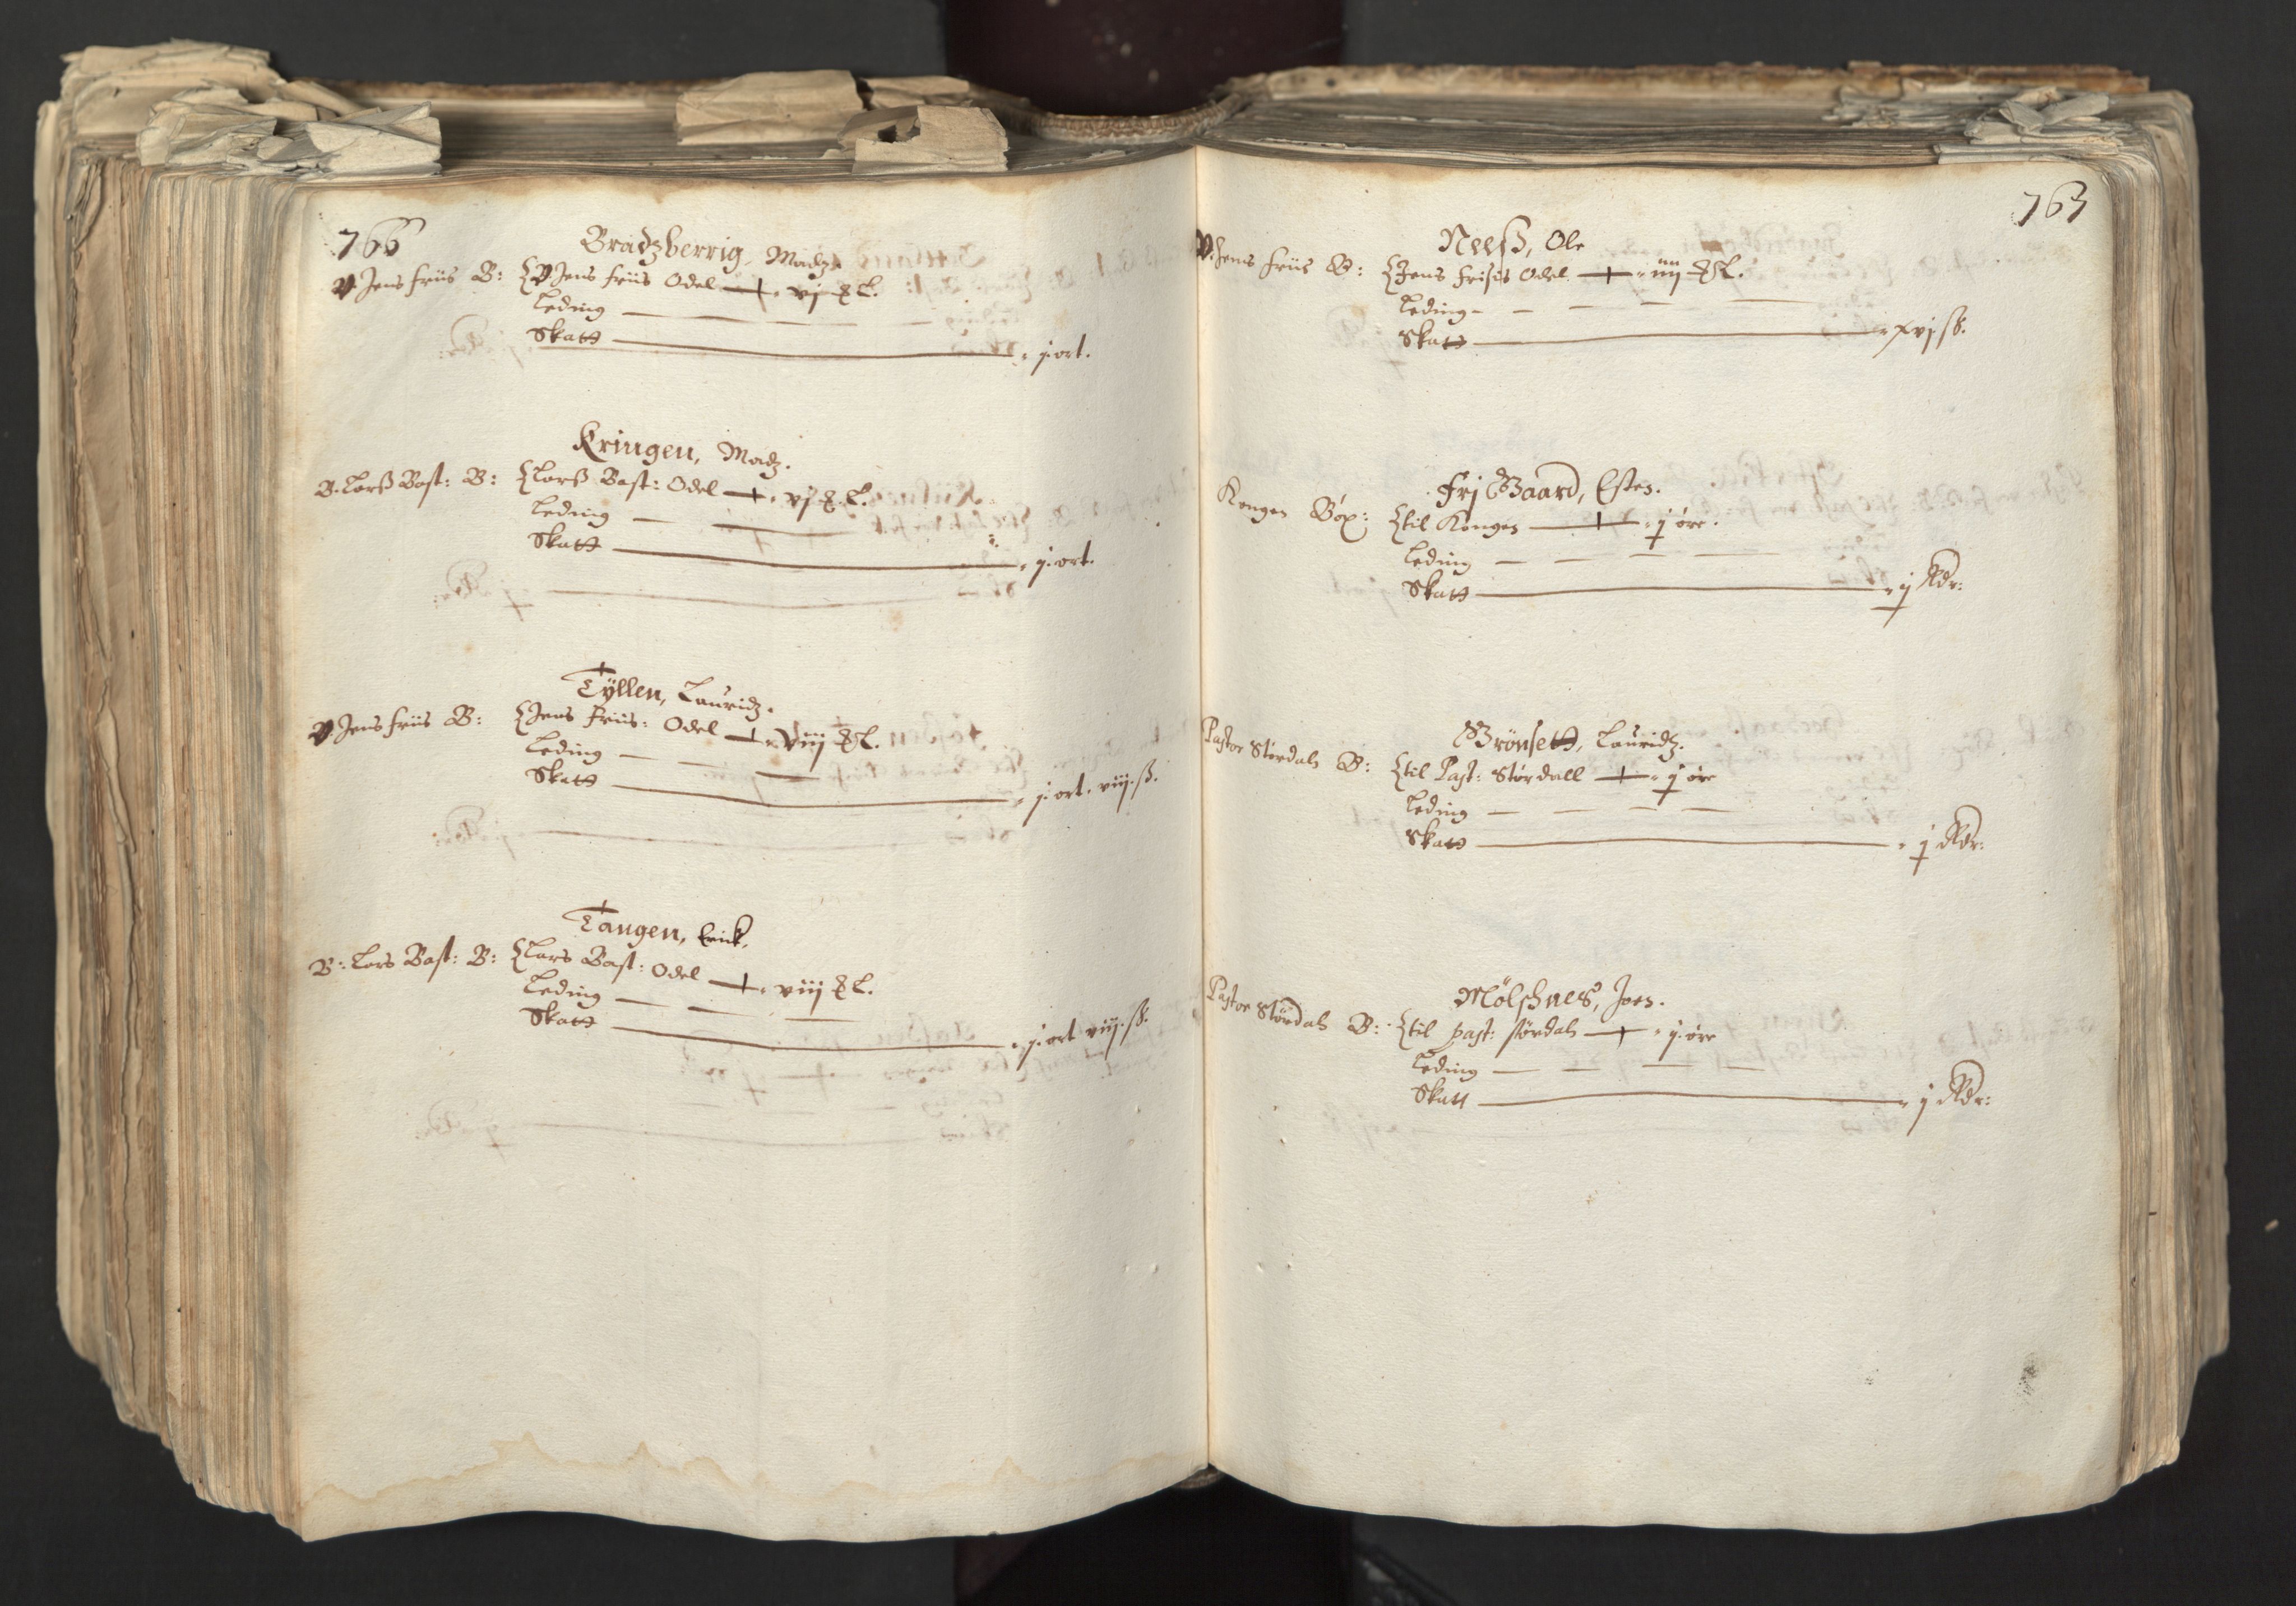 766
Bradzberrig, Madz.
V Jens friis B: Jens friis Odel + vj L.
Leding
Skatt j. ort.
Kringen, Madz.
B. Larß Bast: B: Larß Bast: Odel + vj L.
Leding
Skatt j. ort.
Tÿllen, Lauridz.
V Jens friis B: Jens Friis: Odel + viij L.
Leding
Skatt j. ort. viij. ß.
Tangen, Erick.
B: Lars Bast: B: Lars Bast: Odel + viij L.
Leding
Skatt j. ort viij. ß.
767
Neeß, Ole
V. Jens friis B: Jens friises Odel + iiij L.
Leding
Skatt xvj ß.
Frj Gaard, Esten.
Kongen Böx: til Kongen + j öre.
Leding
Skatt j Rdr:
Grönsett, Lauridz.
Pastor Stördals B: til Past: Stördall + j öre
Leding
Skatt j Rdr:
Mölschnes, Joen.
Pastor Stördals B: til past: stördals + j. öre
Leding
Skatt j Rdr: